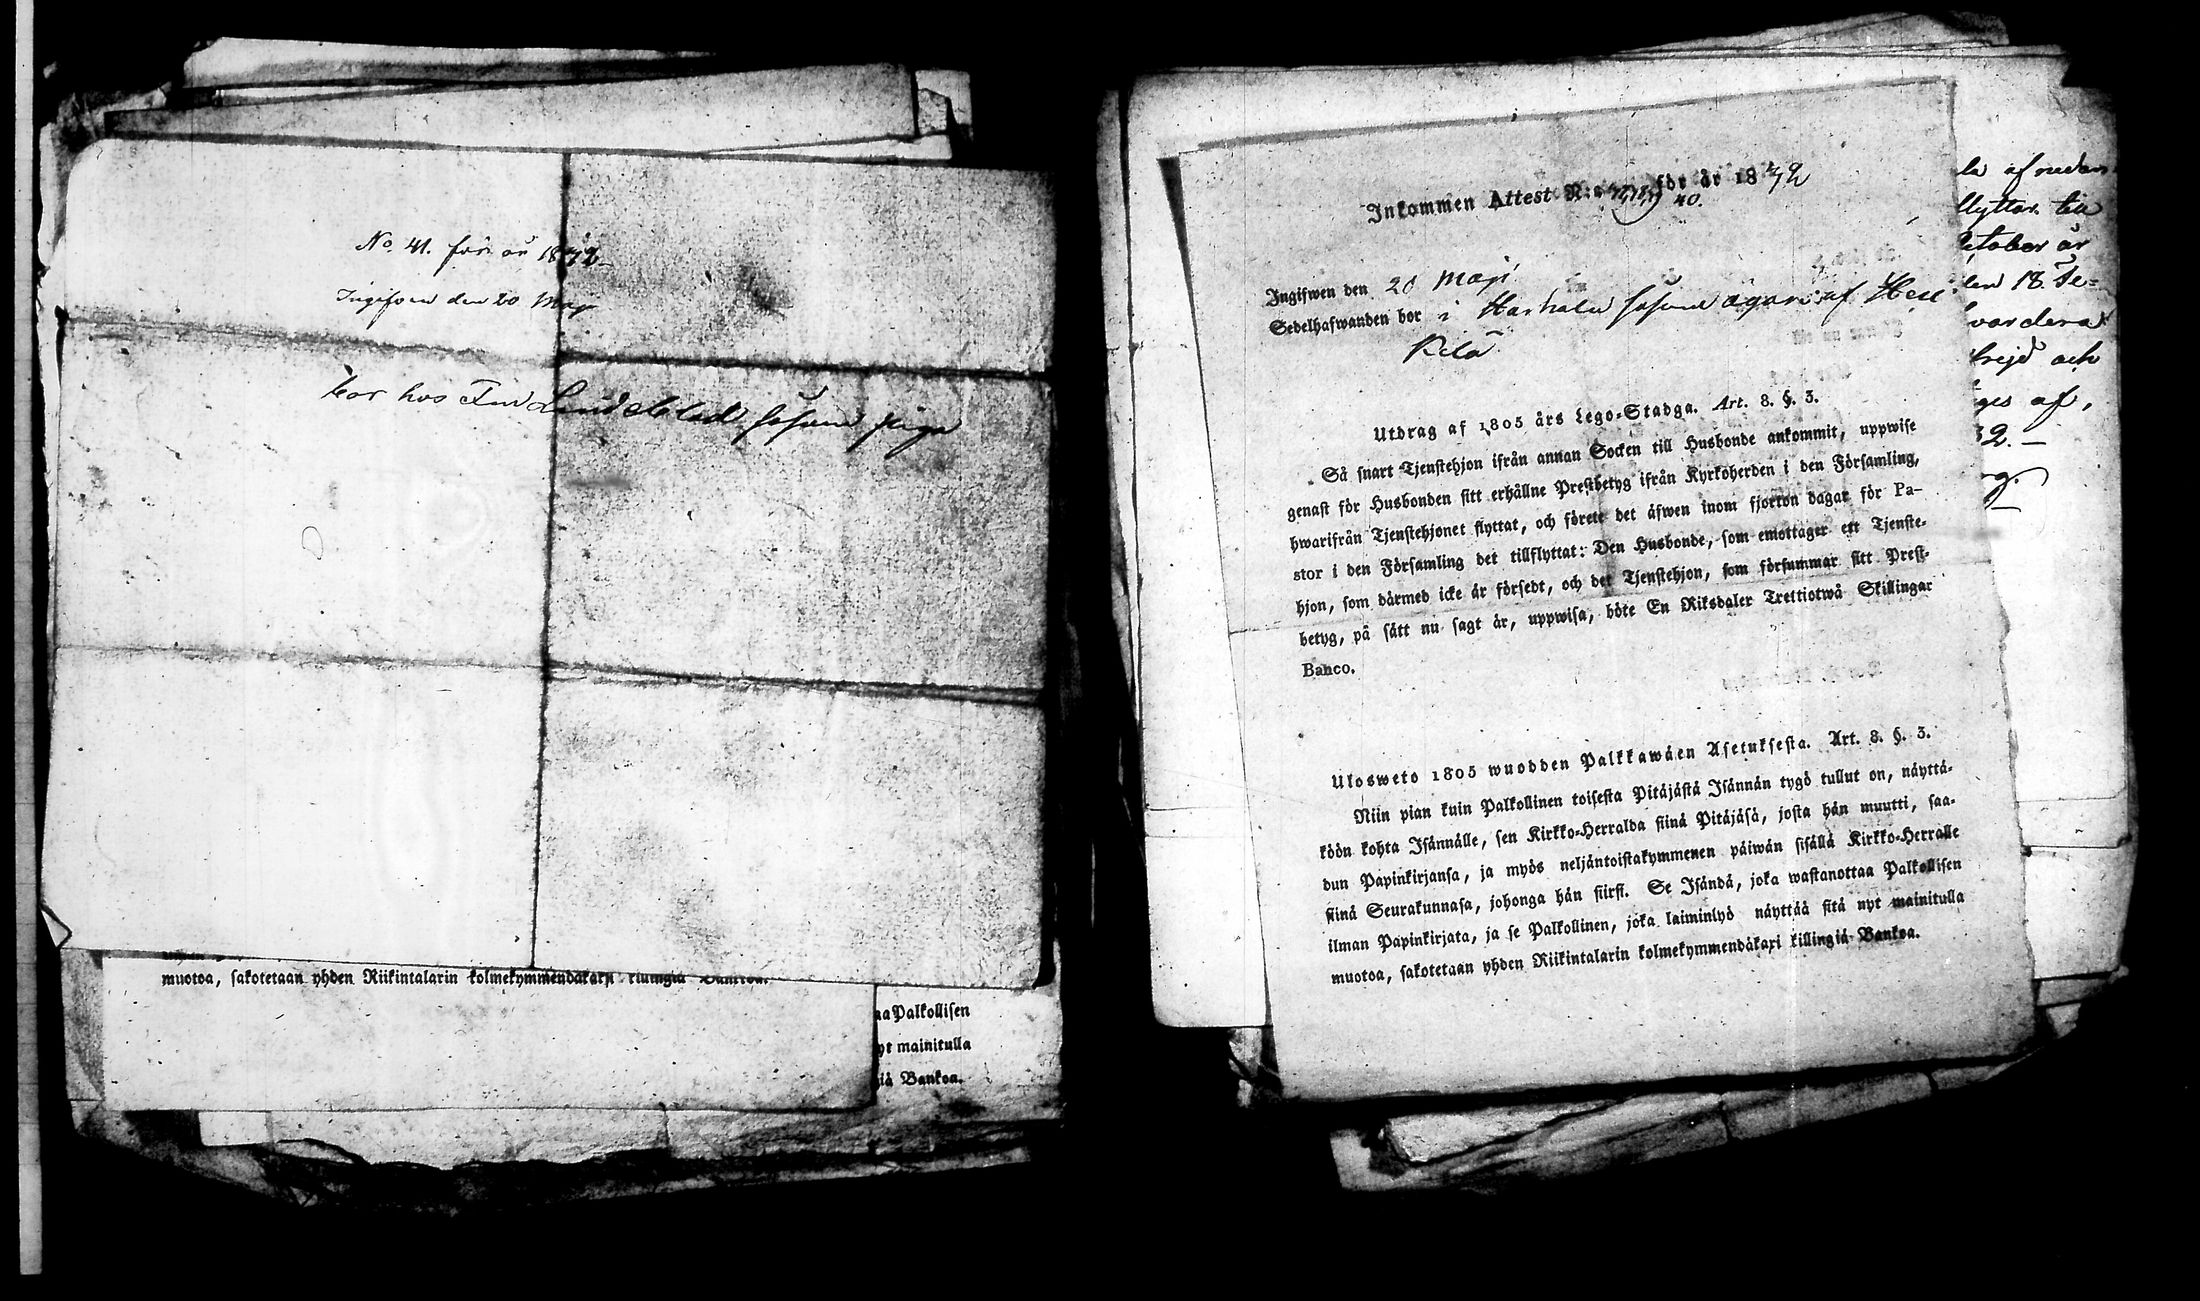 No. 41. för år 1872
Ingifven den 20 Maji
bor hos Lindebled såsom piga
muotoa, sakotetaan yhden Riikintalarin kolmekymmendäkaxi
aa Palkollisen
yt mainitulla
iä Bankoa.
Inkommen Attest N:o 40. för år 1872
Ingifwen den 20 Maji
Sedelhafwanden bor i Harhala såsom ägare af
Kila
Utdrag af 1805 års Lego-Stadga. Art. 8. §. 3.
Så snart Tjenstehjon ifrån annan Socken till Husbonde ankommit, uppwise
genast för Husbonden sitt erhållne Prestbetyg ifrån Kyrkoherden i den Församling,
hwarifrån Tjenstehjonet flyttat, och förete det äfwen inom fjorton dagar för Pa-
stor i den Församling det tillflyttat: Den Husbonde, som emottager ett Tjenste-
hjon, som därmed icke är försedt, och det Tjenstehjon, som försummar sitt Prest-
betyg, på sätt nu sagt är, uppwisa, böte En Riksdaler Trettiotwå Skillingar
Banco.
Ulosweto 1805 wuodden Palkkawäen Asetuksesta. Art. 8. §. 3.
Niin pian kuin Palkollinen toisesta Pitäjästä Isännän tygö tullut on, näyttä-
köön kohta Isännälle, sen Kirkko-Herralda siinä Pitäjäsä, josta hän muutti, saa-
dun Papinkirjansa, ja myös neljäntoistakymmenen päiwän sisällä Kirkko-Herralle
siinä Seurakunnasa, johonga hän siirsi. Se Isändä, joka wastanottaa Palkollisen
ilman Papinkirjata, ja se Palkollinen, joka laiminlyö näyttää sitä nyt mainitulla
muotoa, sakotetaan yhden Riikintalarin kolmekymmendäkaxi killingiä Bankoa.
la af nedan
flyttar till
October är
den 18 Fe=
vardera
frejd och
ges af,
32.
rg.